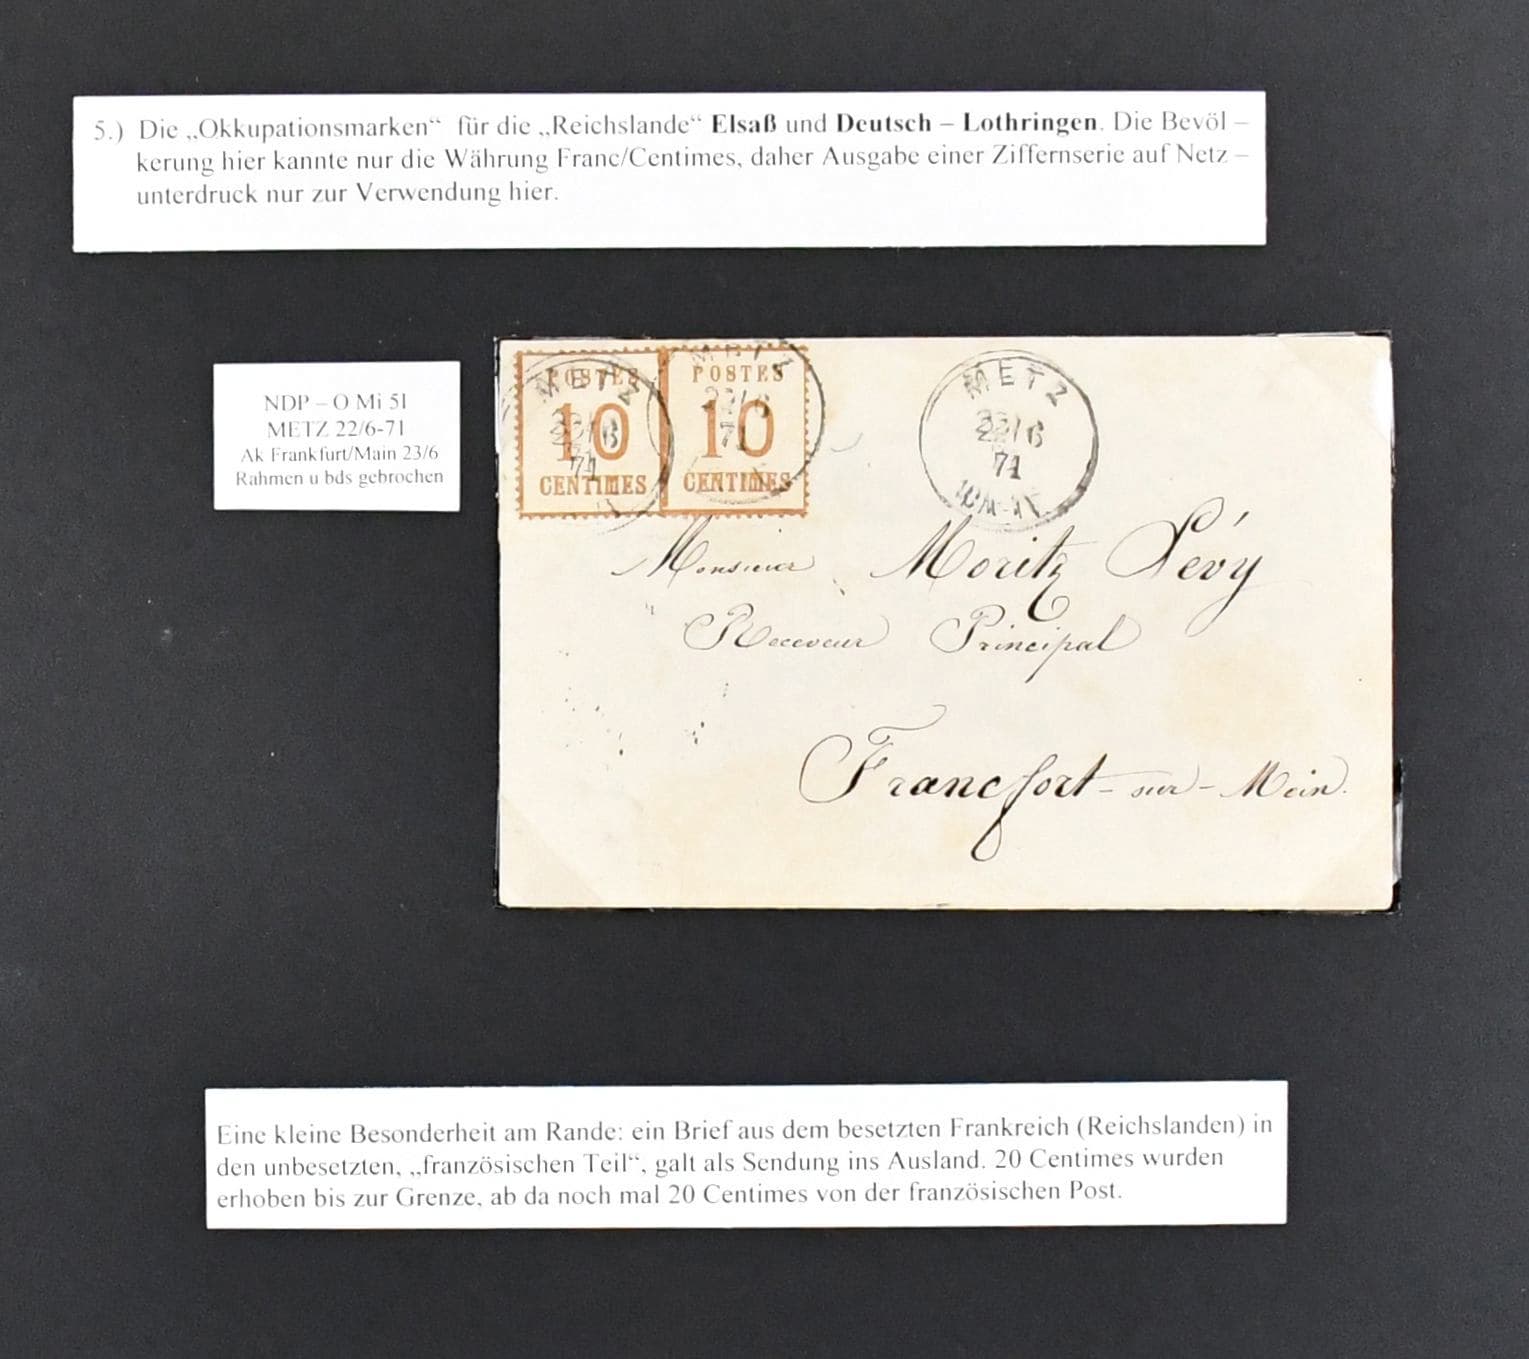 5.) Die „Okkupationsmarken“ für die „Reichslande“ Elsaß und Deutsch – Lothringen. Die Bevöl –
kerung hier kannte nur die Währung Franc/Centimes, daher Ausgabe einer Ziffernserie auf Netz –
unterdruck nur zur Verwendung hier.
NDP – O Mi 5I
METZ 22/6-71
Ak Frankfurt/Main 23/6
Rahmen u bds gebrochen
POSTES
10
CENTIMES
POSTES
10
CENTIMES
METZ
22/6
71
METZ
22/6
71
METZ
22/6
71
Monsieur Moritz Lévy
Receveur Principal
Francfort-sur-Mein.
Eine kleine Besonderheit am Rande: ein Brief aus dem besetzten Frankreich (Reichslanden) in
den unbesetzten, „französischen Teil“, galt als Sendung ins Ausland. 20 Centimes wurden
erhoben bis zur Grenze, ab da noch mal 20 Centimes von der französischen Post.